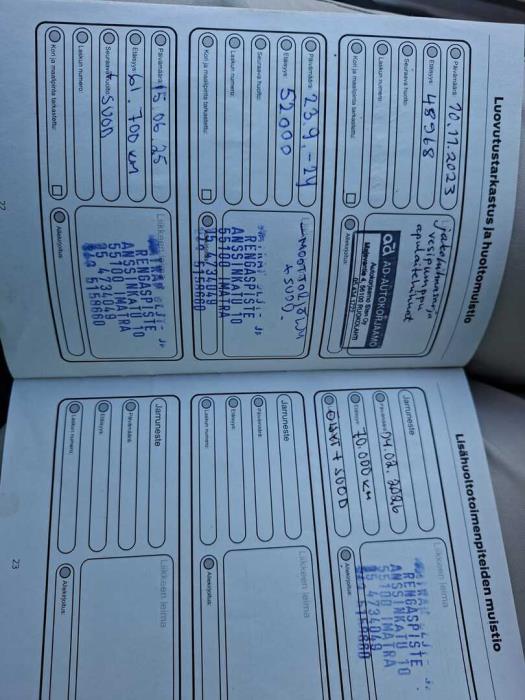 Luovutustarkastus ja huoltomuistio
Päivämäärä: 10.11.2023
Etäisyys: 48968
Seuraava huolto:
Laskun numero:
Kori ja maalipinta tarkastettu:
jakohihnasarja
vesipumppu
apulaitehihnat
ad AD-AUTOKORJAAMO
Allekirjoitus:
Päivämäärä: 23.9.-24
Etäisyys: 52000
Seuraava huolto:
Laskun numero:
Kori ja maalipinta tarkastettu:
+ SUOD.
RENGASPISTE
ANSSINKATU 10
55100 IMATRA
05 4734049
Päivämäärä: 15.06.25
Etäisyys: 700 km
Seuraava huolto:
+ SUOD
Laskun numero:
Kori ja maalipinta tarkastettu:
Liikkeen leima
RENGASPISTE
ANSSINKATU 10
55100 IMATRA
05 4734049
Allekirjoitus:
22
Lisähuoltotoimenpiteiden muistio
Jarruneste
Päivämäärä: 04.02.2026
Etäisyys: 70.000 km
Öljyt + SUOD
Liikkeen leima
RENGASPISTE
ANSSINKATU 10
55100 IMATRA
05 4734049
Allekirjoitus:
Jarruneste
Päivämäärä:
Etäisyys:
Laskun numero:
Liikkeen leima
Allekirjoitus:
Jarruneste
Päivämäärä:
Etäisyys:
Laskun numero:
Liikkeen leima
Allekirjoitus:
23